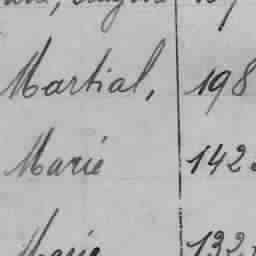 Martial, 198
Marie 142
Marie 132